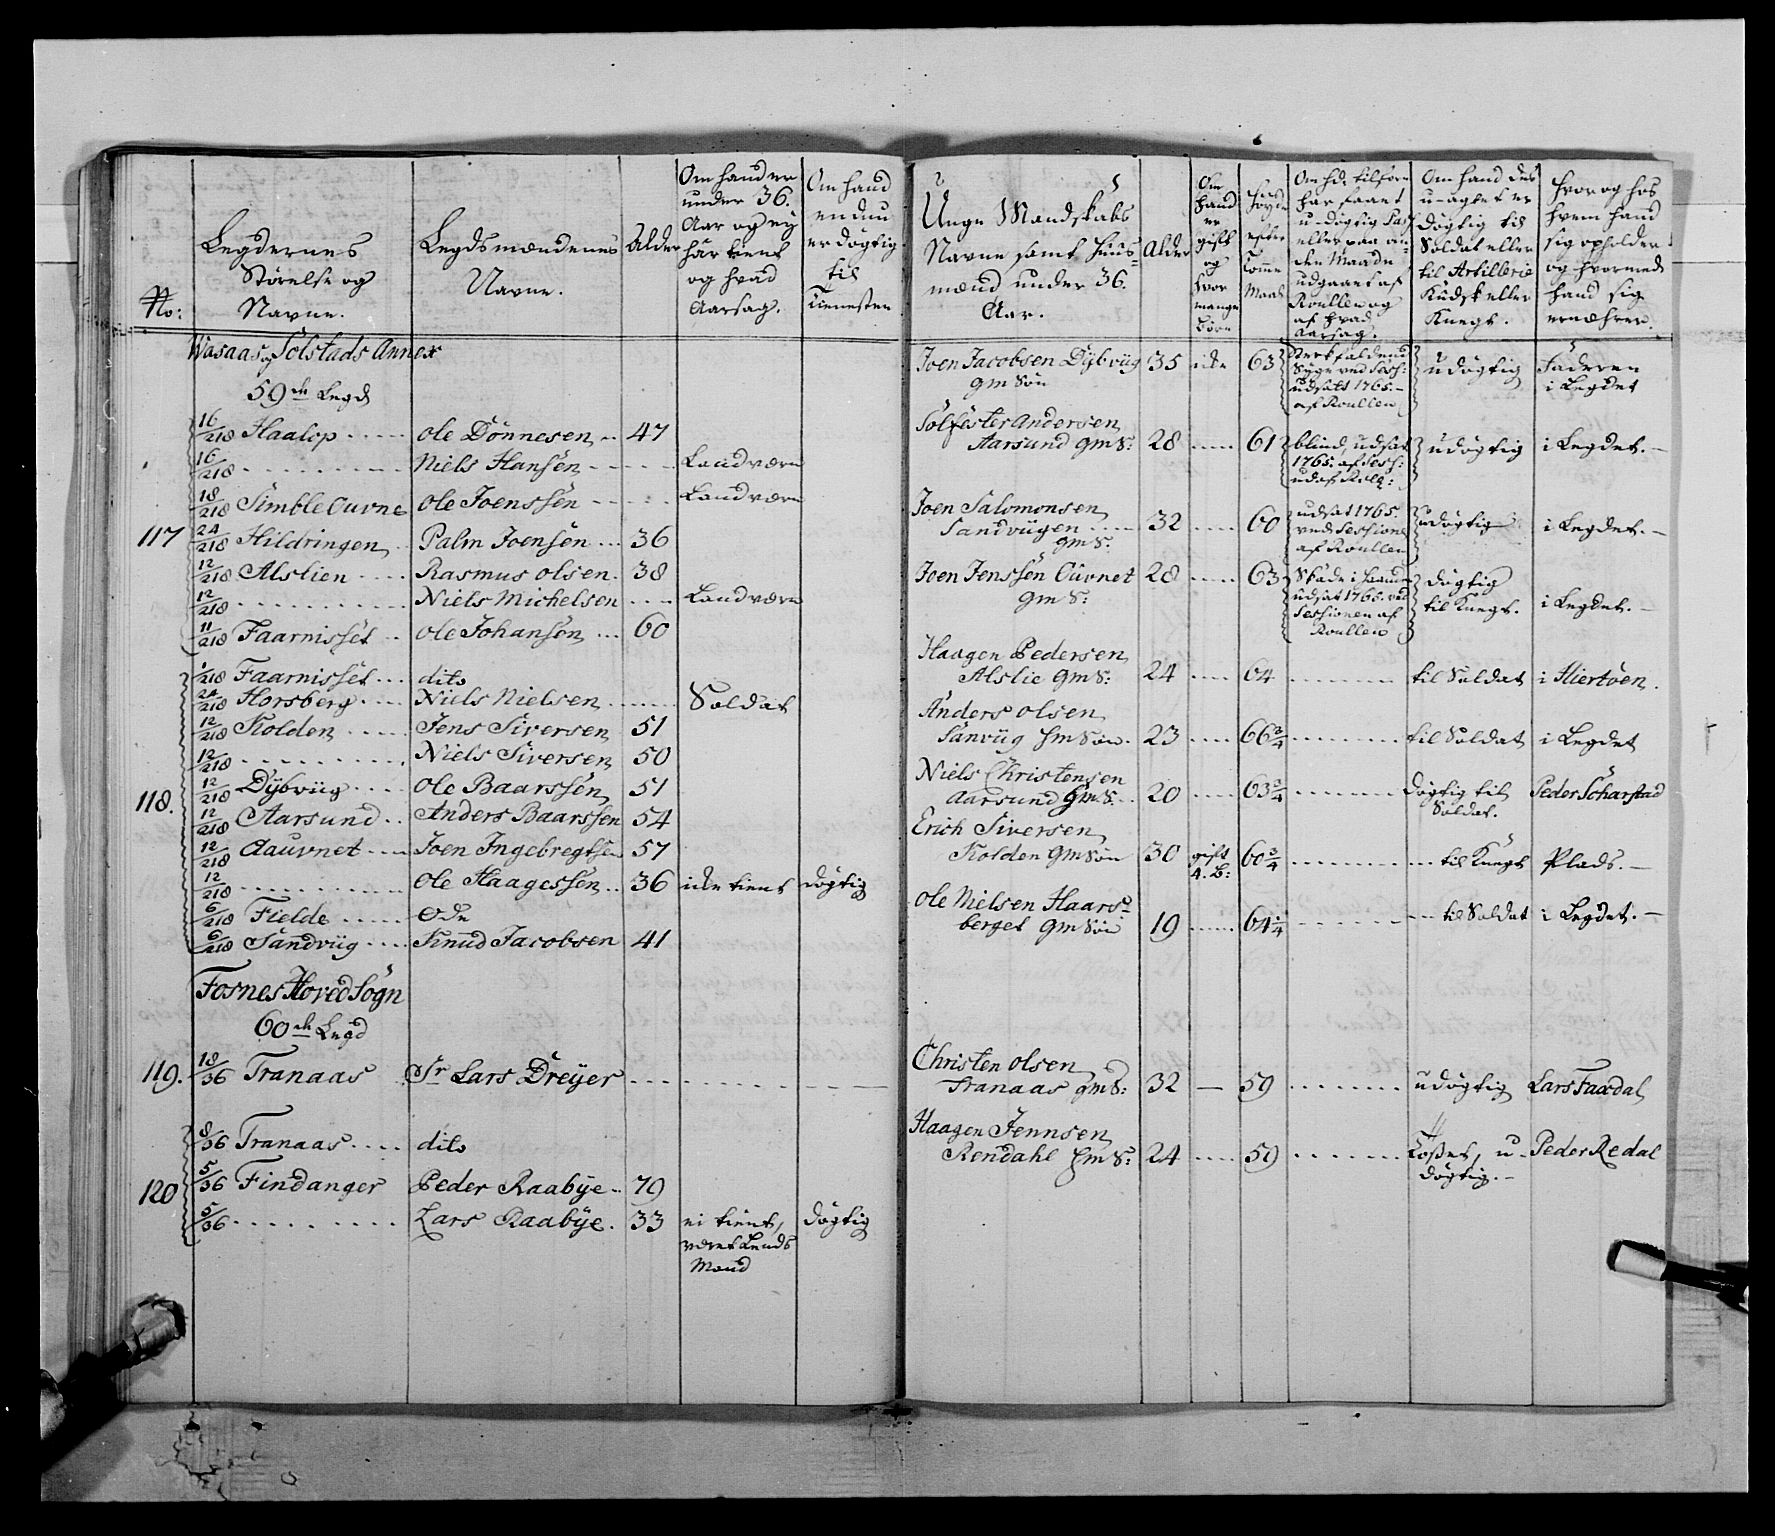 No:
Legdernes
Størelse og
Navne.
Legdsmændenes
Navne.
Alder
Om hand er
under 36.
Aar og ey
har tient
og hvad
Aarsag.
Om hand
endnu
er døgtig
til
Tienesten
Wasaas og Solstads Annex
59de Legd
16/218 Haalop ole Dönnesen 47
16/218 Niels Hansen Landværn
18/218 Simble Ouvne ole Joenssen Landværn
117 24/218 Hildringen Palm Joensen 36
12/218 Alslien Rasmus olsen 38
12/218 Niels Michelsen Landværn
11/218 Faarnisset ole Johansen 60
1/218 Faarnisset dito
24/218 Horsberg Niels Nielsen Soldat
12/218 Kolden Jens Siversen 51
12/218 Niels Siversen 50
118. 12/218 Dybvüg ole Baarssen 51
12/218 Aarsund Anders Baarssen 54
12/218 Aauvnet Joen Ingebregtsen 57
12/218 ole Haagessen 36 icke tient døgtig
6/218 Fielde Øde
6/218 Sandvüg Knud Jacobsen 41
Fosnes Hoved Sogn
60de Legd
119. 18/36 Tranaas Sr Lars Dreyer
8/36 Tranaas dito
120 5/36 Findanger Peder Raabye 79
5/36 Lars Raabye 33 ei tient, døgtig
været Lends
Mand
Unge Mandskabs
Navne samt Huus-
mænd under 36.
Aar.
Alder
Om
hand
er
gift
og
hvor
mange
Børn
Høyde
efter
Tomme
Maal
Om hde tilforn
har faaet
udøgtig Pas
eller paa an-
den Maade
udgaaet af
Roullen og
af hvad
Aarsag.
Om hand des
u-agtet er
døgtig til
Soldat eller
til Artillerie
Kudsk eller
Knegt.
Hvor og hos
hvem hand
sig opholder
og hvormed
hand sig
ernæhrer.
Joen Jacobsen Dybvüg 35 icke 63
gm Søn
Syge ved Sess:
udsat 1765.
af Roullen
udøgtig
Faderen
i Legdet
Solfester Andersen
Aarsund gm S: 28 61
blind, udsat
1765. af Sess:
ud af Roll:
udøgtig i Legdet.
Joen Salomonsen
Sandvügen 32 60
gm S:
udsat 1765.
ved Sessionen
af Roullen
udøgtig i Legdet.
Joen Jenssen Ouvnet 28 63
gm S:
Skade i Haanden
udsat 1765. ved
Sessionen af
Roullen
døgtig
til Knegt. i Legdet.
Haagen Pedersen
Alslie gm S: 24 64 til Soldat i Hiertøen.
Anders olsen
Sanvüg hm Søn. 23 66 3/4 til Soldat i Legdet
Niels Christensen
Aarsund gm S. 20 63 3/4 døgtig til Peder Scharstad
Soldat.
Erich Siversen
Kolden gm Søn 30 gift 60 3/4 til Knegt Plads.
4. B:
ole Nielsen Haars-
berget gm Søn 19 64 1/4 til Soldat i Legdet.
Christen olsen
Tranaas gm S: 32 59 udøgtig Lars Faxdal
Haagen Jennsen
Rendahl hm S: 24 59 u- Peder Redal
døgtig.